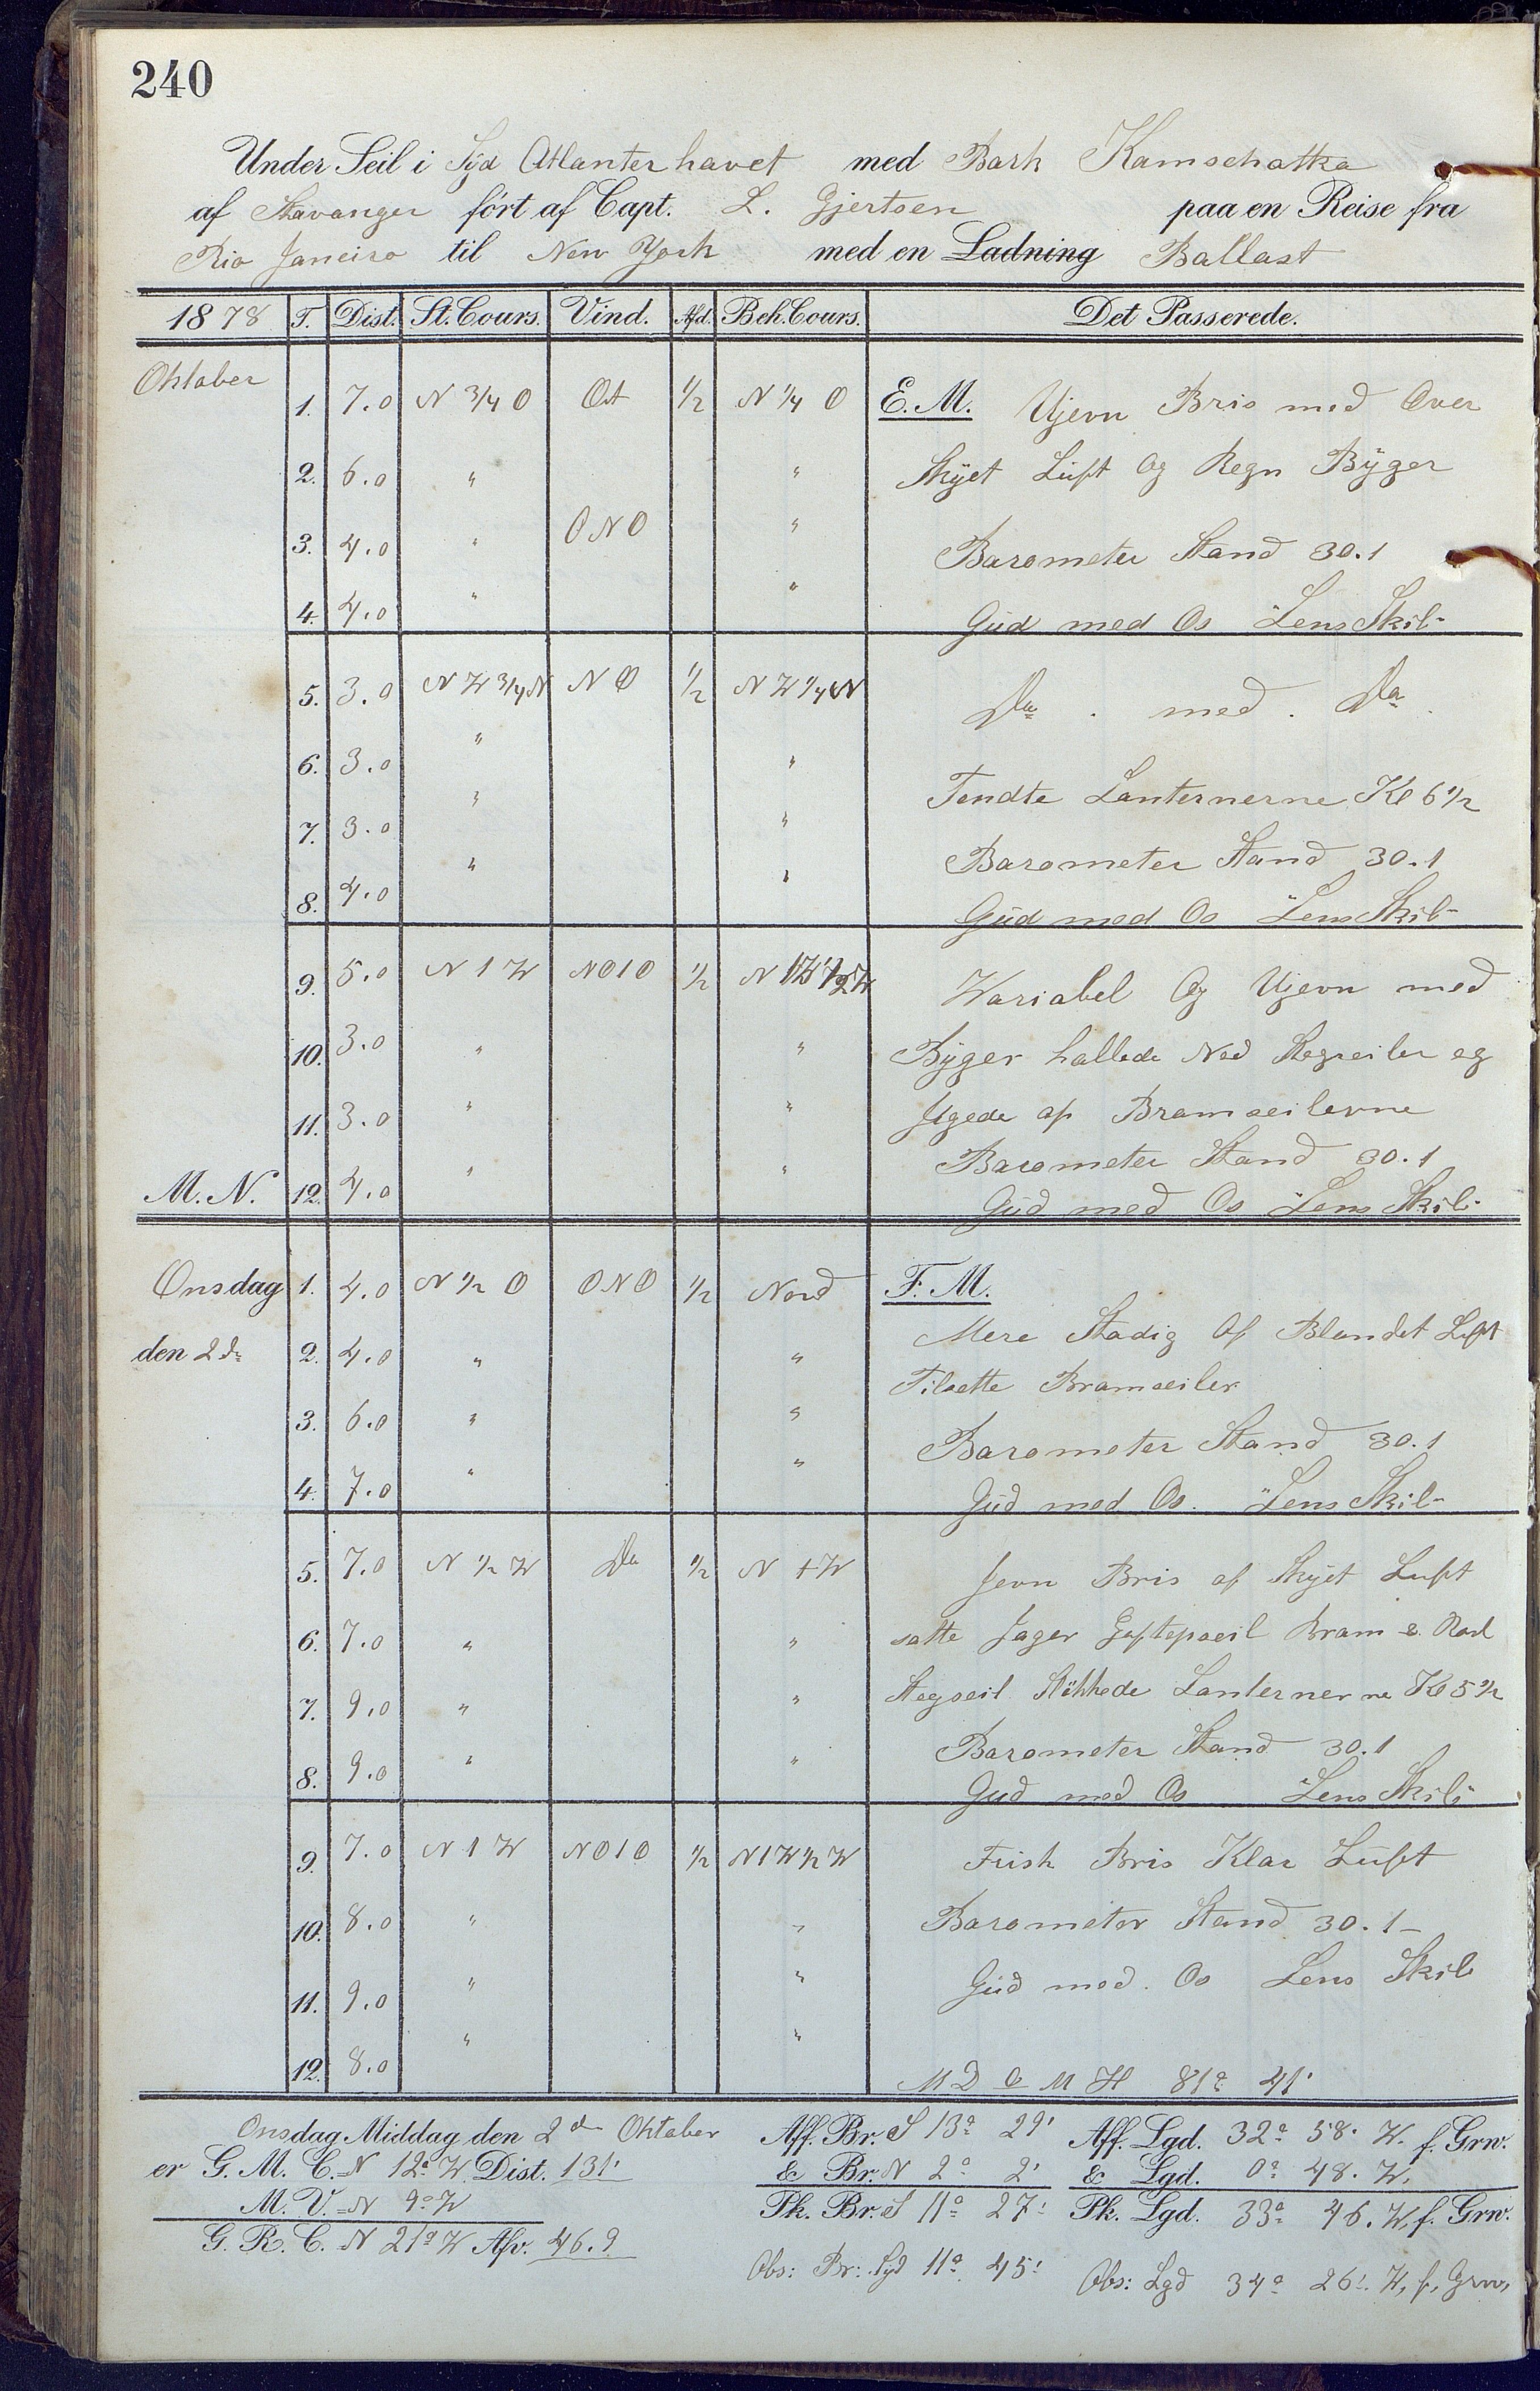 240
Under Seil i Syd Atlanterhavet med Bark Kamschatka
af Stavanger ført af Capt. L. Gjertsen paa en Reise fra
Rio Janeiro til New York med en Ladning Ballast
1878 T. Dist. St. Cours. Vind. Afd. Beh. Cours. Det Passerede.
Oktober 1. 7.0 N 3/4 O Ost 1/2 N 1/4 O E.M. Ujevn Bris med Over
2. 6.0 " " Skyet Luft Og Regn Byger
3. 4.0 " ONO " Barometer Stand 30.1
4. 4.0 " " Gud med Os Lens Skib
5. 3.0 N W 3/4 N N O 1/2 N W 1/4 N Do . med . Do
6. 3.0 " "
7. 3.0 " " Tendte Lanternerne Kl 6 1/2
Barometer Stand 30.1
8. 4.0 " " Gud med Os Lens Skib
9. 5.0 N 1 W NO1O 1/2 N 1W 1/2 W Wariabel Og Ujevn med
10. 3.0 " " Byger hallede Ned Stagseiler og
11. 3.0 " " af Bramseilerne
Barometer Stand 30.1
M.N. 12. 4.0 " " Gud med Os Lens Skib
Onsdag 1. 4.0 N 1/2 O ONO 1/2 Nord F.M.
Mere Stadig Af Blandet Luft
den 2de 2. 4.0 " " Tilsatte Bramseiler
3. 6.0 " " Barometer Stand 30.1
4. 7.0 " " Gud med Os. Lens Skib
5. 7.0 N 1/2 W Do 1/2 N 1 W Jevn Bris af Skyet Luft
6. 7.0 " " satte Jager Bram &
7. 9.0 " " Stagseil Slukkede Lanternerne Kl 5 1/2
Barometer Stand 30.1
8. 9.0 " " Gud med Os Lens Skib
9. 7.0 N 1 W NO1O 1/2 N1W 1/2 W Frisk Bris Klar Luft
10. 8.0 " " Barometer Stand 30.1
11. 9.0 " " Gud med. Os Lens Skib
12. 8.0 " "
M D O M H 81° 41'
Onsdag Middag den 2de Oktober Aff. Br. S 13° 29' Aff. Lgd. 32° 58' W. f. Grw.
er G. M. C. N 12° W Dist. 131' & Br. N 2° 2' & Lgd. 0° 48' W.
M. V. N 9° W Pk. Br. S 11° 27' Pk. Lgd. 33° 46' W. f. Grw.
G. R. C. N 21° W Afv. 46.9
Obs: Br: Syd 11° 45' Obs: Lgd 34° 26' W. f. Grw.